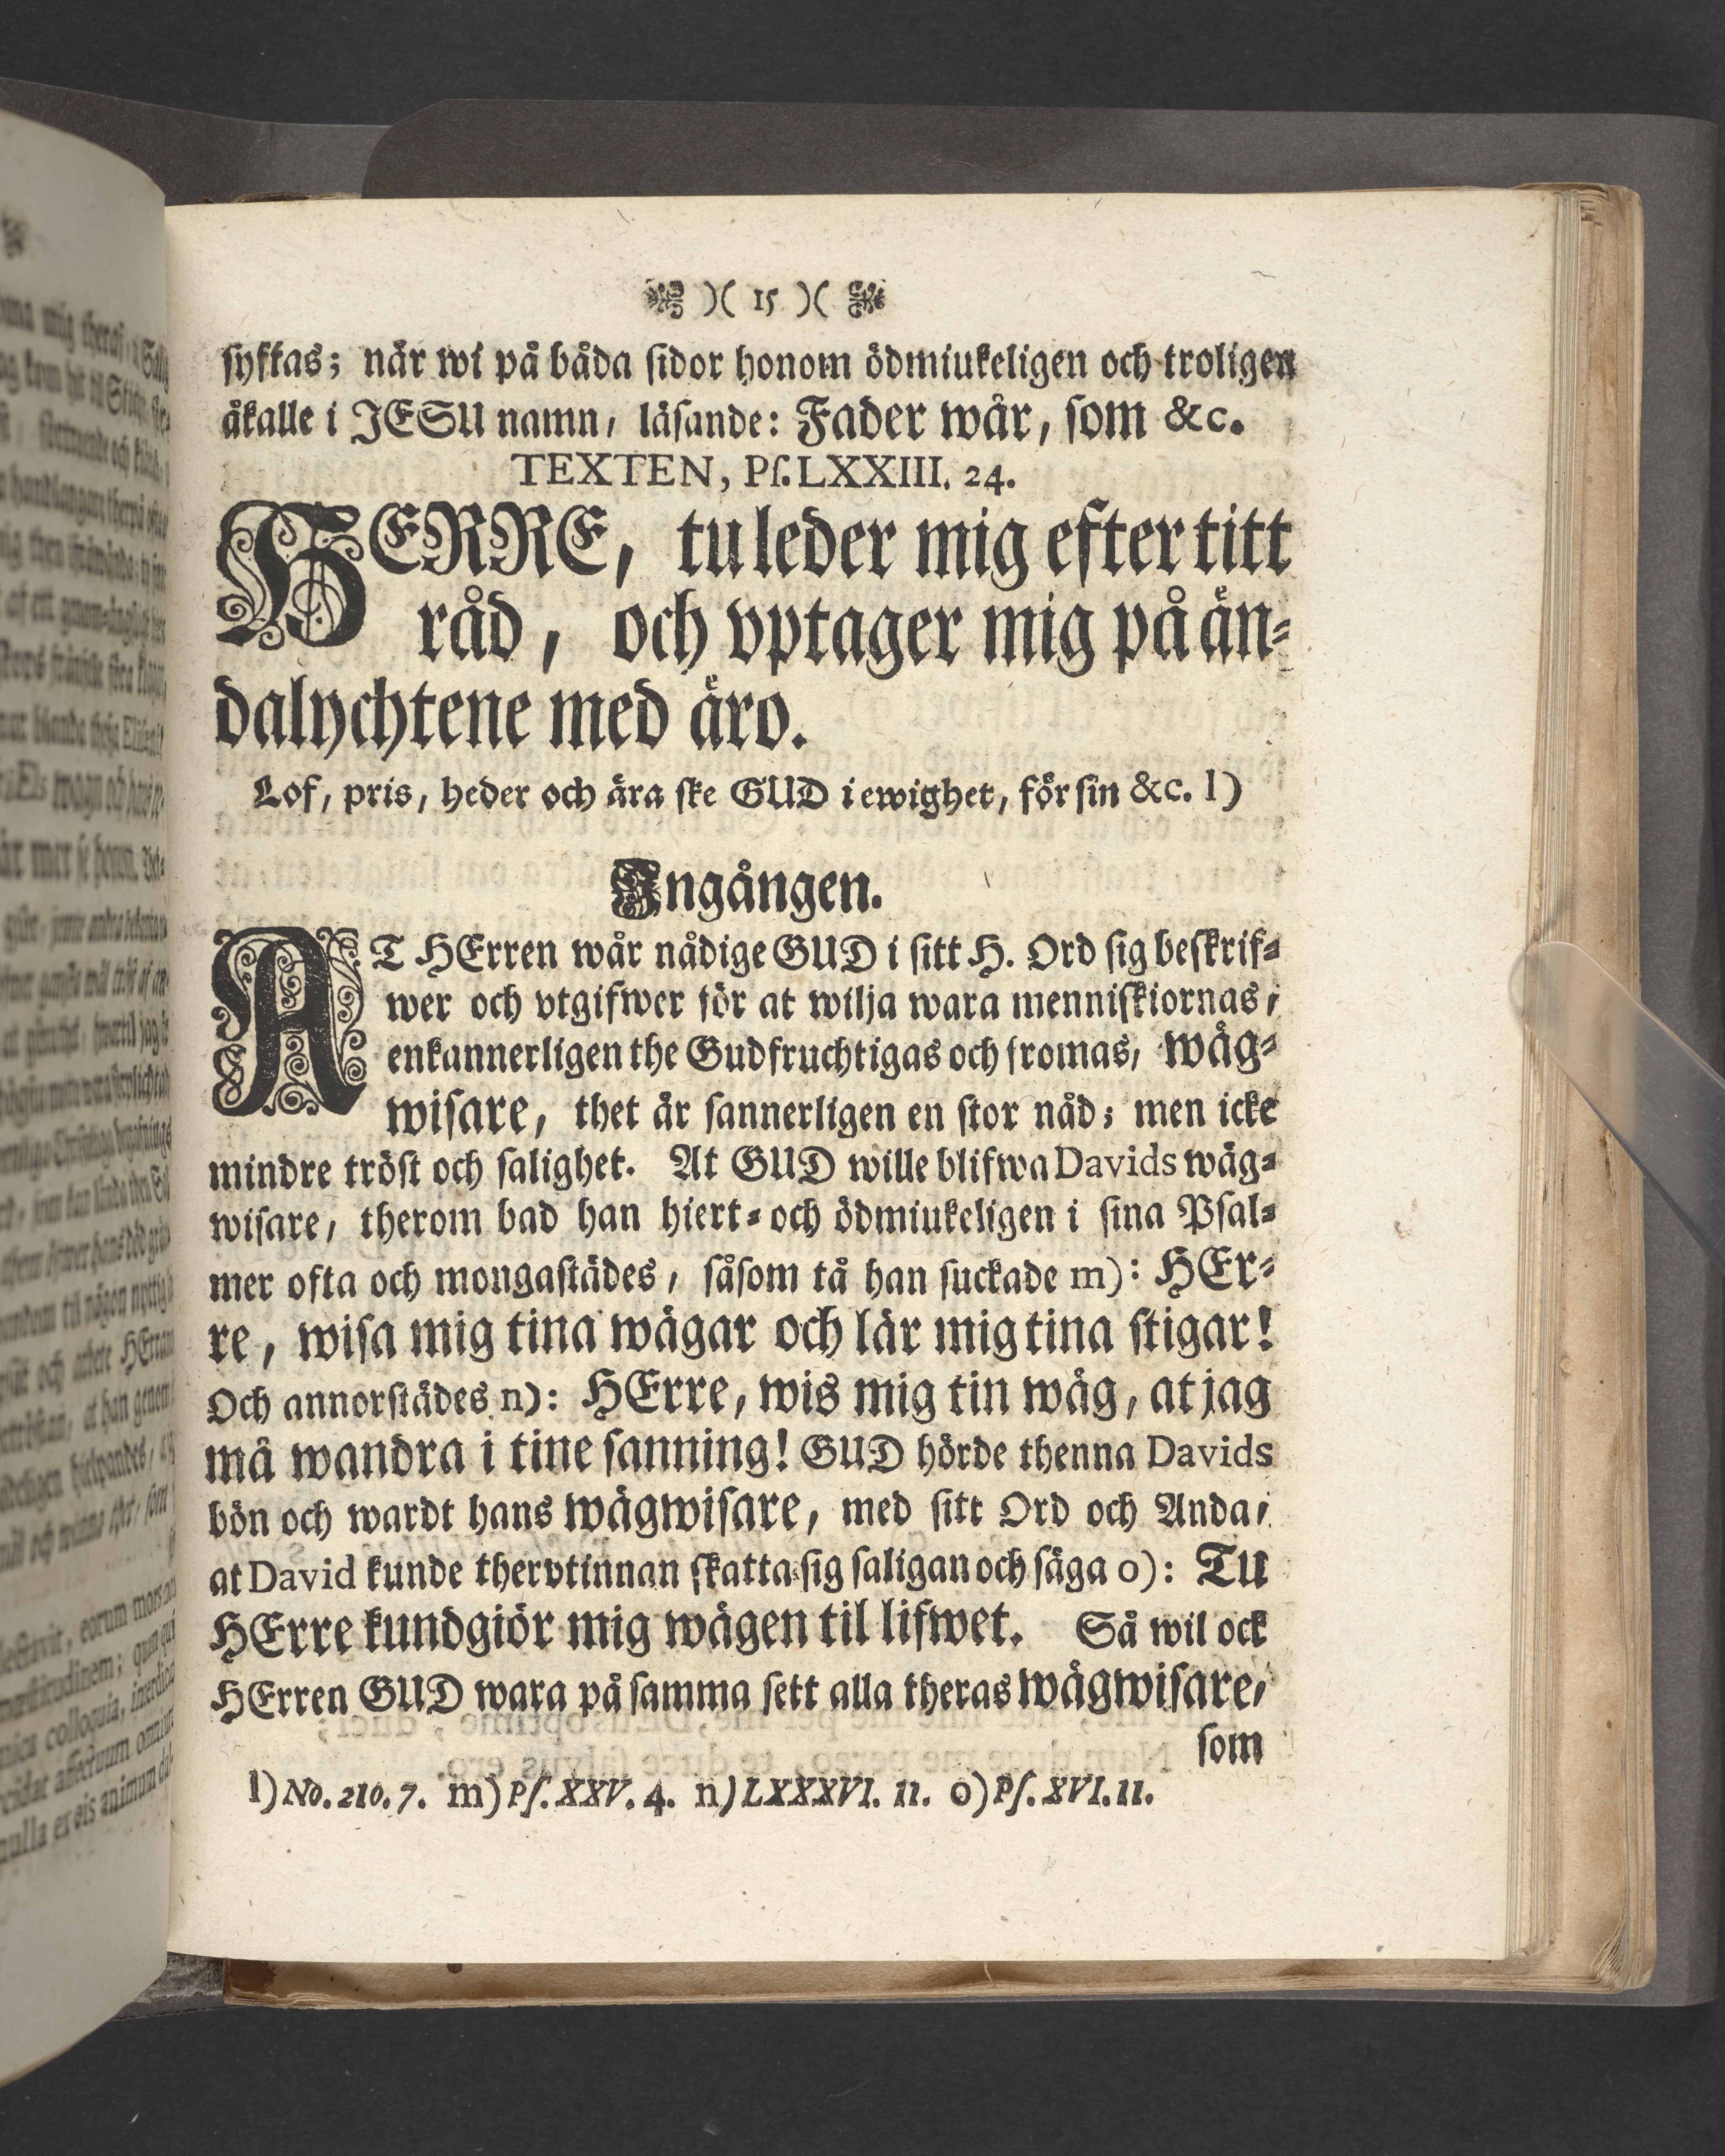 )( 15 )(
syftas; når wi på båda sidor honom ödmiukeligen och troligen
åkalle i JESU namn, läsande: Fader wår, som &c.
TEXTEN, Ps. LXXIII. 24.
HERRE, tu leder mig efter titt
råd, och vptager mig på än-
dalychtene med äro.
Lof, pris, heder och ära ske GUD i ewighet, för sin &c. l)
Ingången.
AT HErren wår nådige GUD i sitt H. Ord sig beskrif-
wer och vtgifwer för at wilja wara menniskiornas,
enkannerligen the Gudfruchtigas och fromas, wäg-
wisare, thet är sannerligen en stor nåd; men icke
mindre tröst och salighet. At GUD wille blifwa Davids wäg-
wisare, therom bad han hiert- och ödmiukeligen i sina Psal-
mer ofta och mongastädes, såsom tå han suckade m): HEr-
re, wisa mig tina wägar och lär mig tina stigar!
Och annorstädes n): HErre, wis mig tin wäg, at jag
må wandra i tine sanning! GUD hörde thenna Davids
bön och wardt hans wägwisare, med sitt Ord och Anda,
at David kunde thervtinnan skatta sig saligan och säga o): TU
HErre kundgiör mig wägen til lifwet. Så wil ock
HErren GUD wara på samma sett alla theras wägwisare,
som
l) No. 210. 7. m) Ps. XXV. 4. n) LXXXVI. 11. o) Ps. XVI. 11.